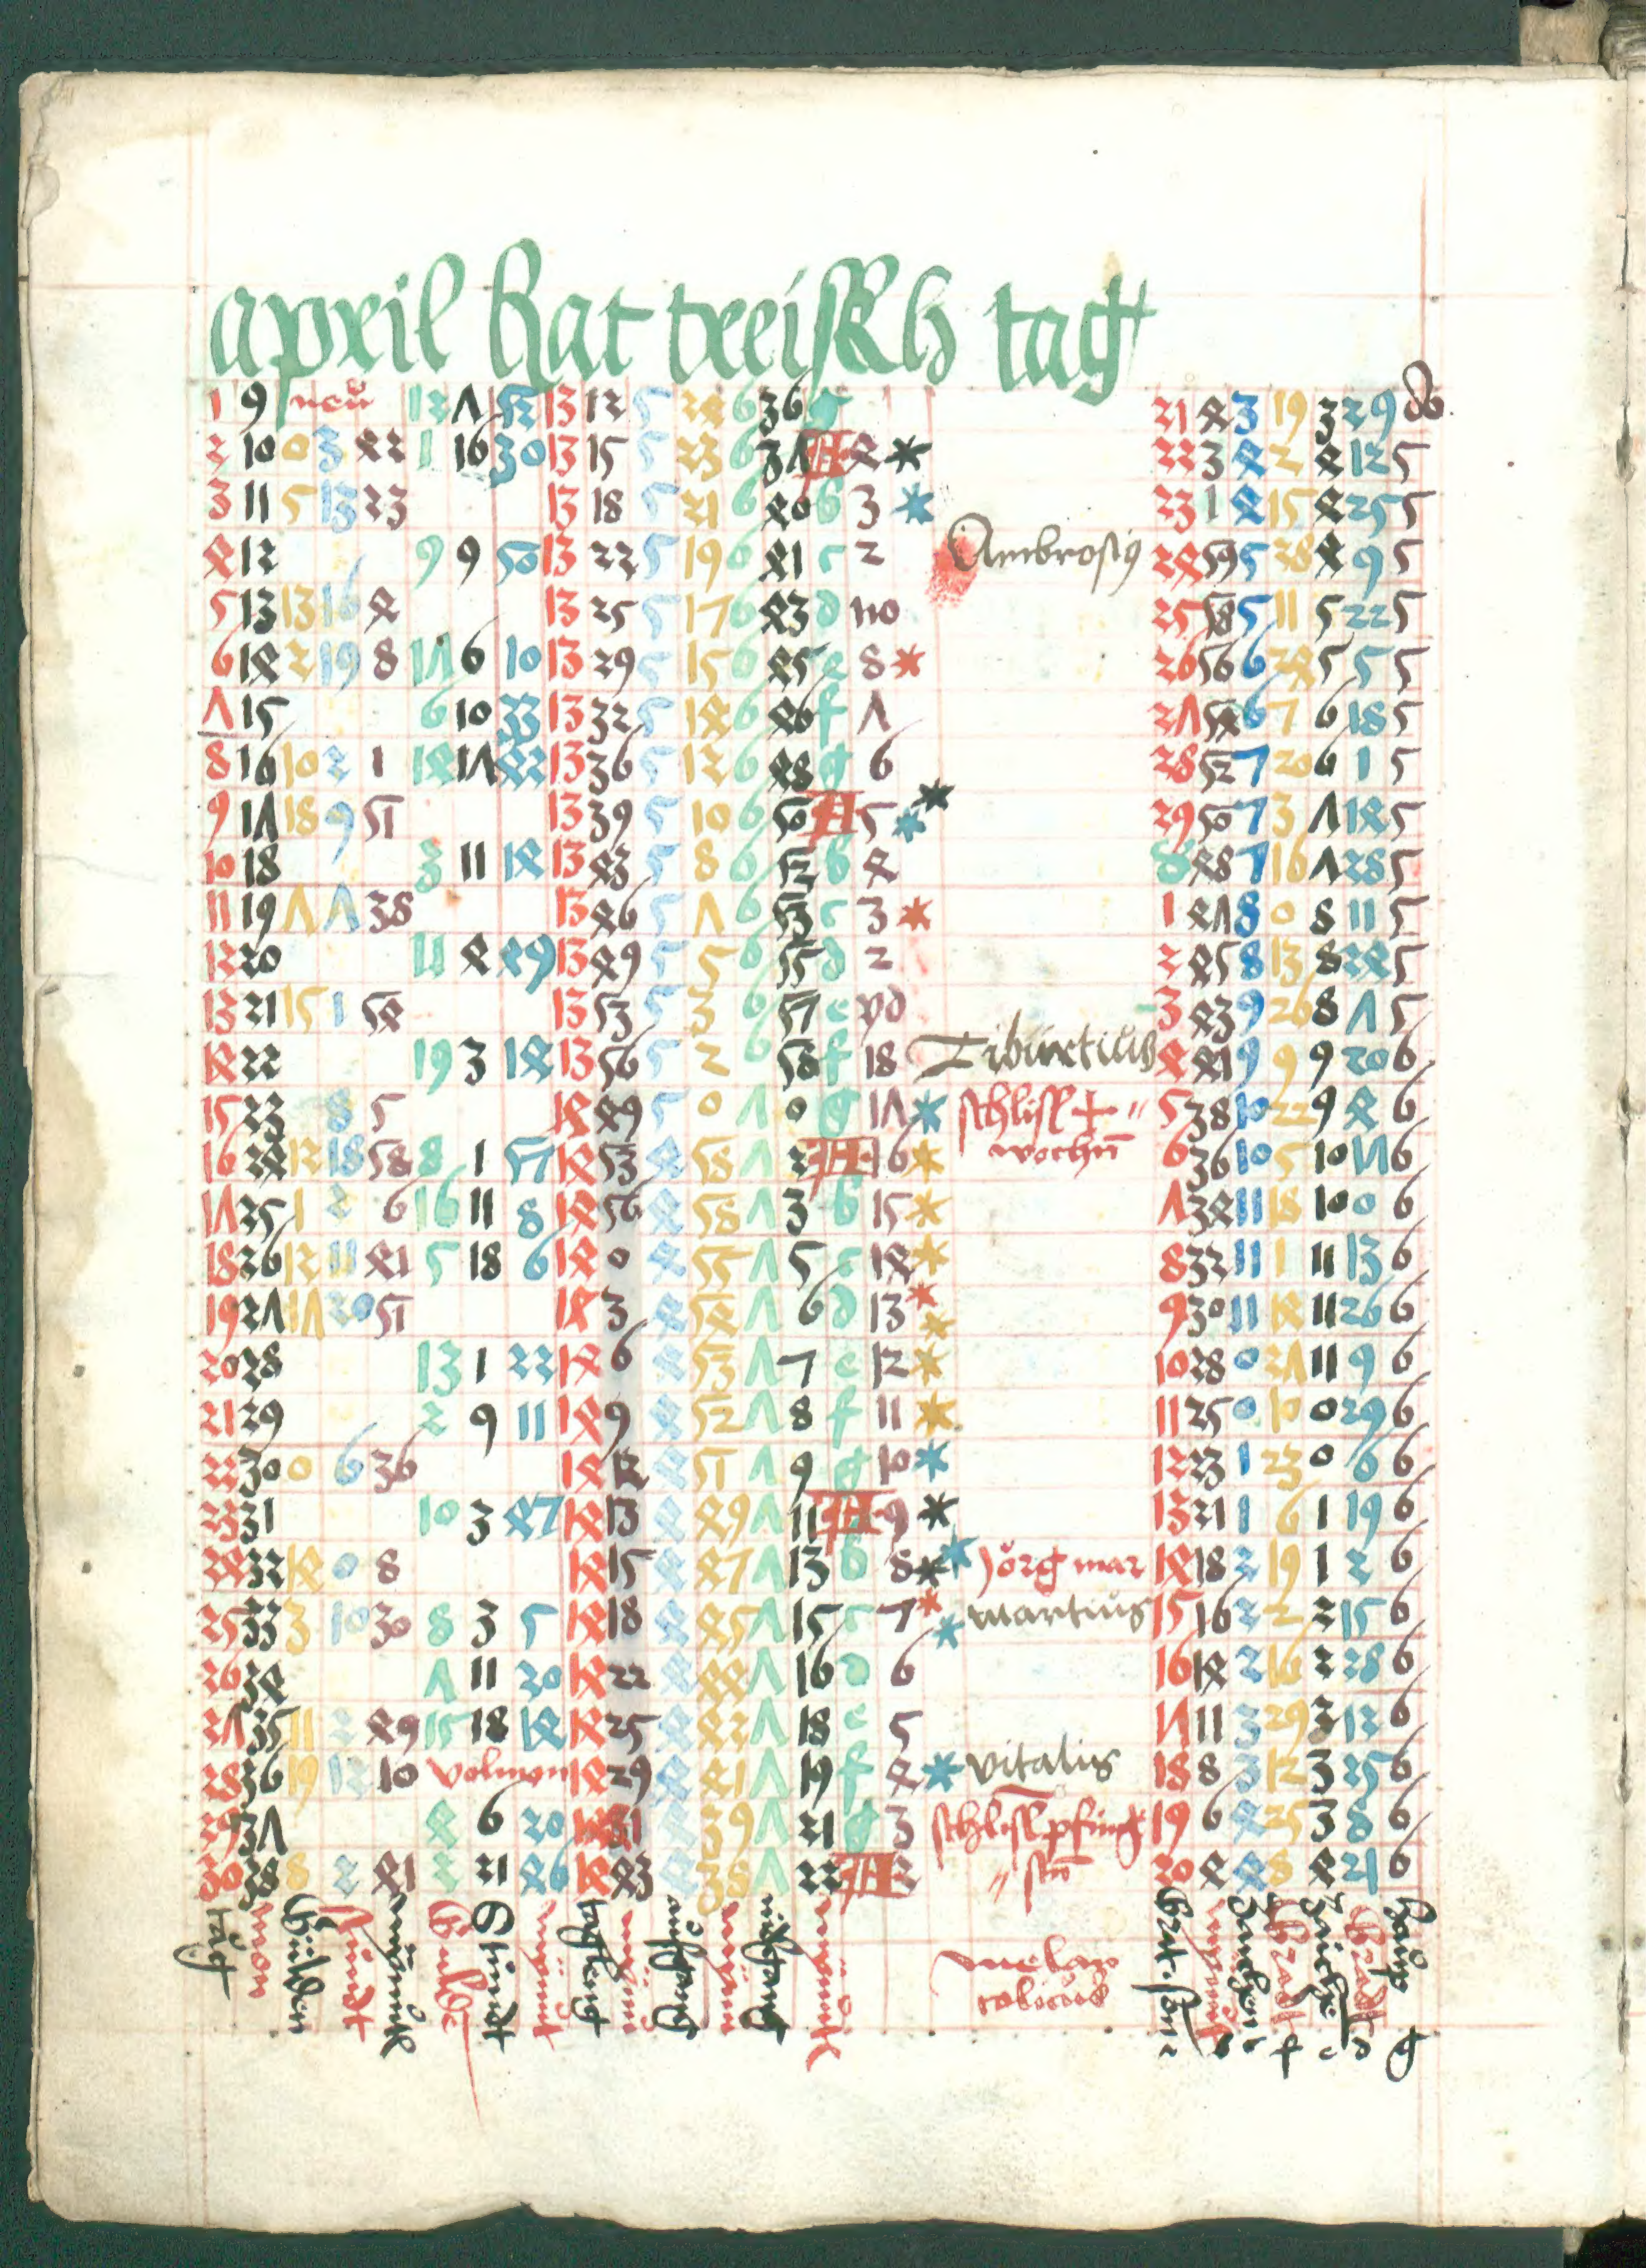 april hat treissKh tag
1 9 neu 12 7 52 13 12 5 24 6 36 g 21 4 3 19 3 29 do
2 10 0 3 42 1 16 30 13 15 5 23 6 37 A 4 22 3 4 2 4 12 5
3 11 5 13 23 13 18 5 21 6 40 b 3 23 1 4 15 4 25 5
4 12 9 9 50 13 22 5 19 6 41 c 2 Ambrosi9 24 59 5 28 4 9 5
5 13 13 16 4 13 25 5 17 6 43 d no 25 58 5 11 5 22 5
6 14 2 19 8 17 6 10 13 29 5 15 6 45 e 8 26 56 6 24 5 5 5
7 15 6 10 33 13 32 5 14 6 46 f 7 27 54 6 7 6 18 5
8 16 10 2 1 14 17 42 13 36 5 12 6 48 g 6 28 52 7 20 6 1 5
9 17 18 9 51 13 39 5 10 6 50 A 5 29 50 7 3 7 14 5
10 18 3 11 14 13 43 5 8 6 52 b 4 48 7 16 7 28 5
11 19 7 7 38 13 46 5 7 6 53 c 3 1 47 8 0 8 11 5
12 20 11 4 49 13 49 5 5 6 55 d 2 2 45 8 13 8 24 5
13 21 15 1 54 13 53 5 3 6 57 e yd 3 43 9 26 8 7 5
14 22 19 3 14 13 56 5 2 6 58 f 18 Tiburtius 4 41 9 9 9 20 6
15 23 8 5 14 49 5 0 7 0 g 17 schlisß + 5 38 10 22 9 4 6
wochn
16 24 12 18 58 8 1 57 14 53 4 58 7 2 A 16 6 36 10 5 10 17 6
17 25 1 2 6 16 11 8 14 56 4 58 7 3 b 15 7 34 11 18 10 0 6
18 26 12 11 41 5 18 6 14 0 4 55 7 5 c 14 8 32 11 1 11 13 6
19 27 17 20 51 14 3 4 54 7 6 d 13 9 30 11 14 11 26 6
20 28 13 1 22 14 6 4 53 7 7 e 12 10 28 0 27 11 9 6
21 29 2 9 11 14 9 4 52 7 8 f 11 11 25 0 10 0 29 6
22 30 0 6 36 14 12 4 51 7 9 g 10 12 23 1 23 0 6 6
23 31 10 3 47 14 13 4 49 7 11 A 9 13 21 1 6 1 19 6
24 32 14 0 8 14 15 4 47 7 13 b 8 Jörg mar 14 18 2 19 1 2 6
25 33 3 10 30 8 3 5 14 18 4 45 7 15 c 7 martius 15 16 2 2 2 15 6
26 34 7 11 20 14 22 4 44 7 16 d 6 16 14 2 16 2 28 6
27 35 11 2 49 15 18 14 14 25 4 42 7 18 e 5 17 11 3 29 3 12 6
28 36 19 12 10 volmon 14 29 4 41 7 19 f 4 vitalis 18 8 3 12 3 25 6
29 37 4 6 20 14 31 4 39 7 21 g 3 schlisß pfing 19 6 4 25 3 8 6
30 38 8 2 41 2 21 46 14 43 4 38 7 22 A 2 20 4 4 8 4 21 6
tag
mon
Gulden
Stundt
Stundt
taglengt
melan
colicus